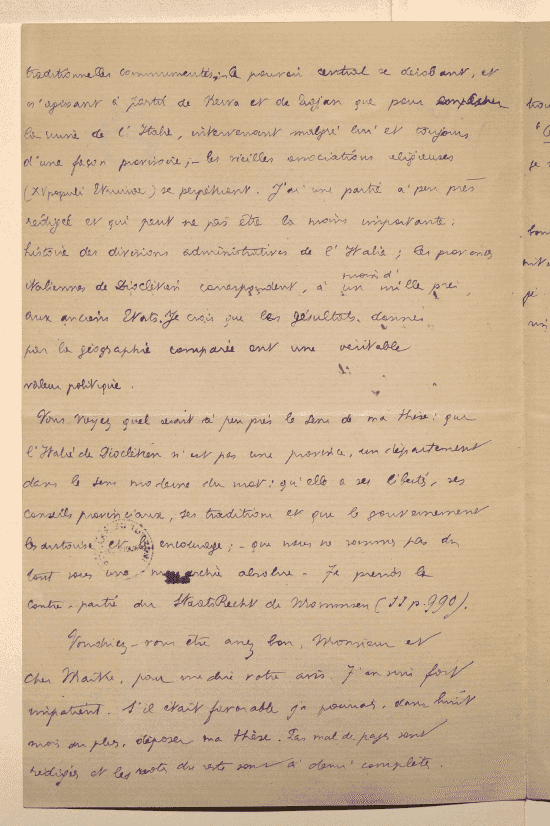 traditionnelles communautés; le pouvoir central se désobant, et
n'agissant à partir de Nerva et de Trajan que pour empêcher
la ruine de l'Italie, intervenant malgré lui et toujours
d'une façon provisoire; - les vieilles associations religieuses
(XV populi Etruriae) se perpétuent. J'ai une partie à peu près
rédigée et qui peut ne pas être la moins importante:
histoire des divisions administratives de l'Italie; les provinces
italiennes de Dioclétien correspondent, à moins d'un mille près,
aux anciens Etats. Je crois que les résultats donnés
par la géographie comparée ont une véritable
valeur politique.
Vous voyez quel serait à peu près le sens de ma thèse: que
l'Italie de Dioclétien n'est pas une province, un département
dans le sens moderne du mot: qu'elle a ses libertés, ses
conseils provinciaux, ses traditions et que le gouvernement
les autorise et les encourage; - que nous ne sommes pas du
tout sous une monarchie absolue. - Je prends la
contre-partie du StaatsRecht de Mommsen (II p. 990).
Voudriez-vous être assez bon, Monsieur et
cher Maître, pour me dire votre avis. J'en suis fort
impatient. S'il était favorable je pourrais, dans huit
mois au plus, déposer ma thèse. Pas mal de pages sont
rédigées et les restes du reste sont à demi complets.